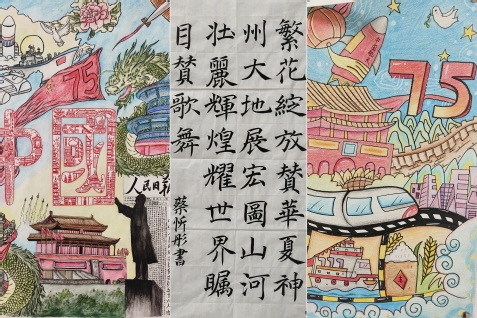 75
中國
人民日報
繁花綻放贊華夏神
州大地展宏圖山河
壯麗輝煌耀世界矚
目贊歌舞
蔡忻彤書
75